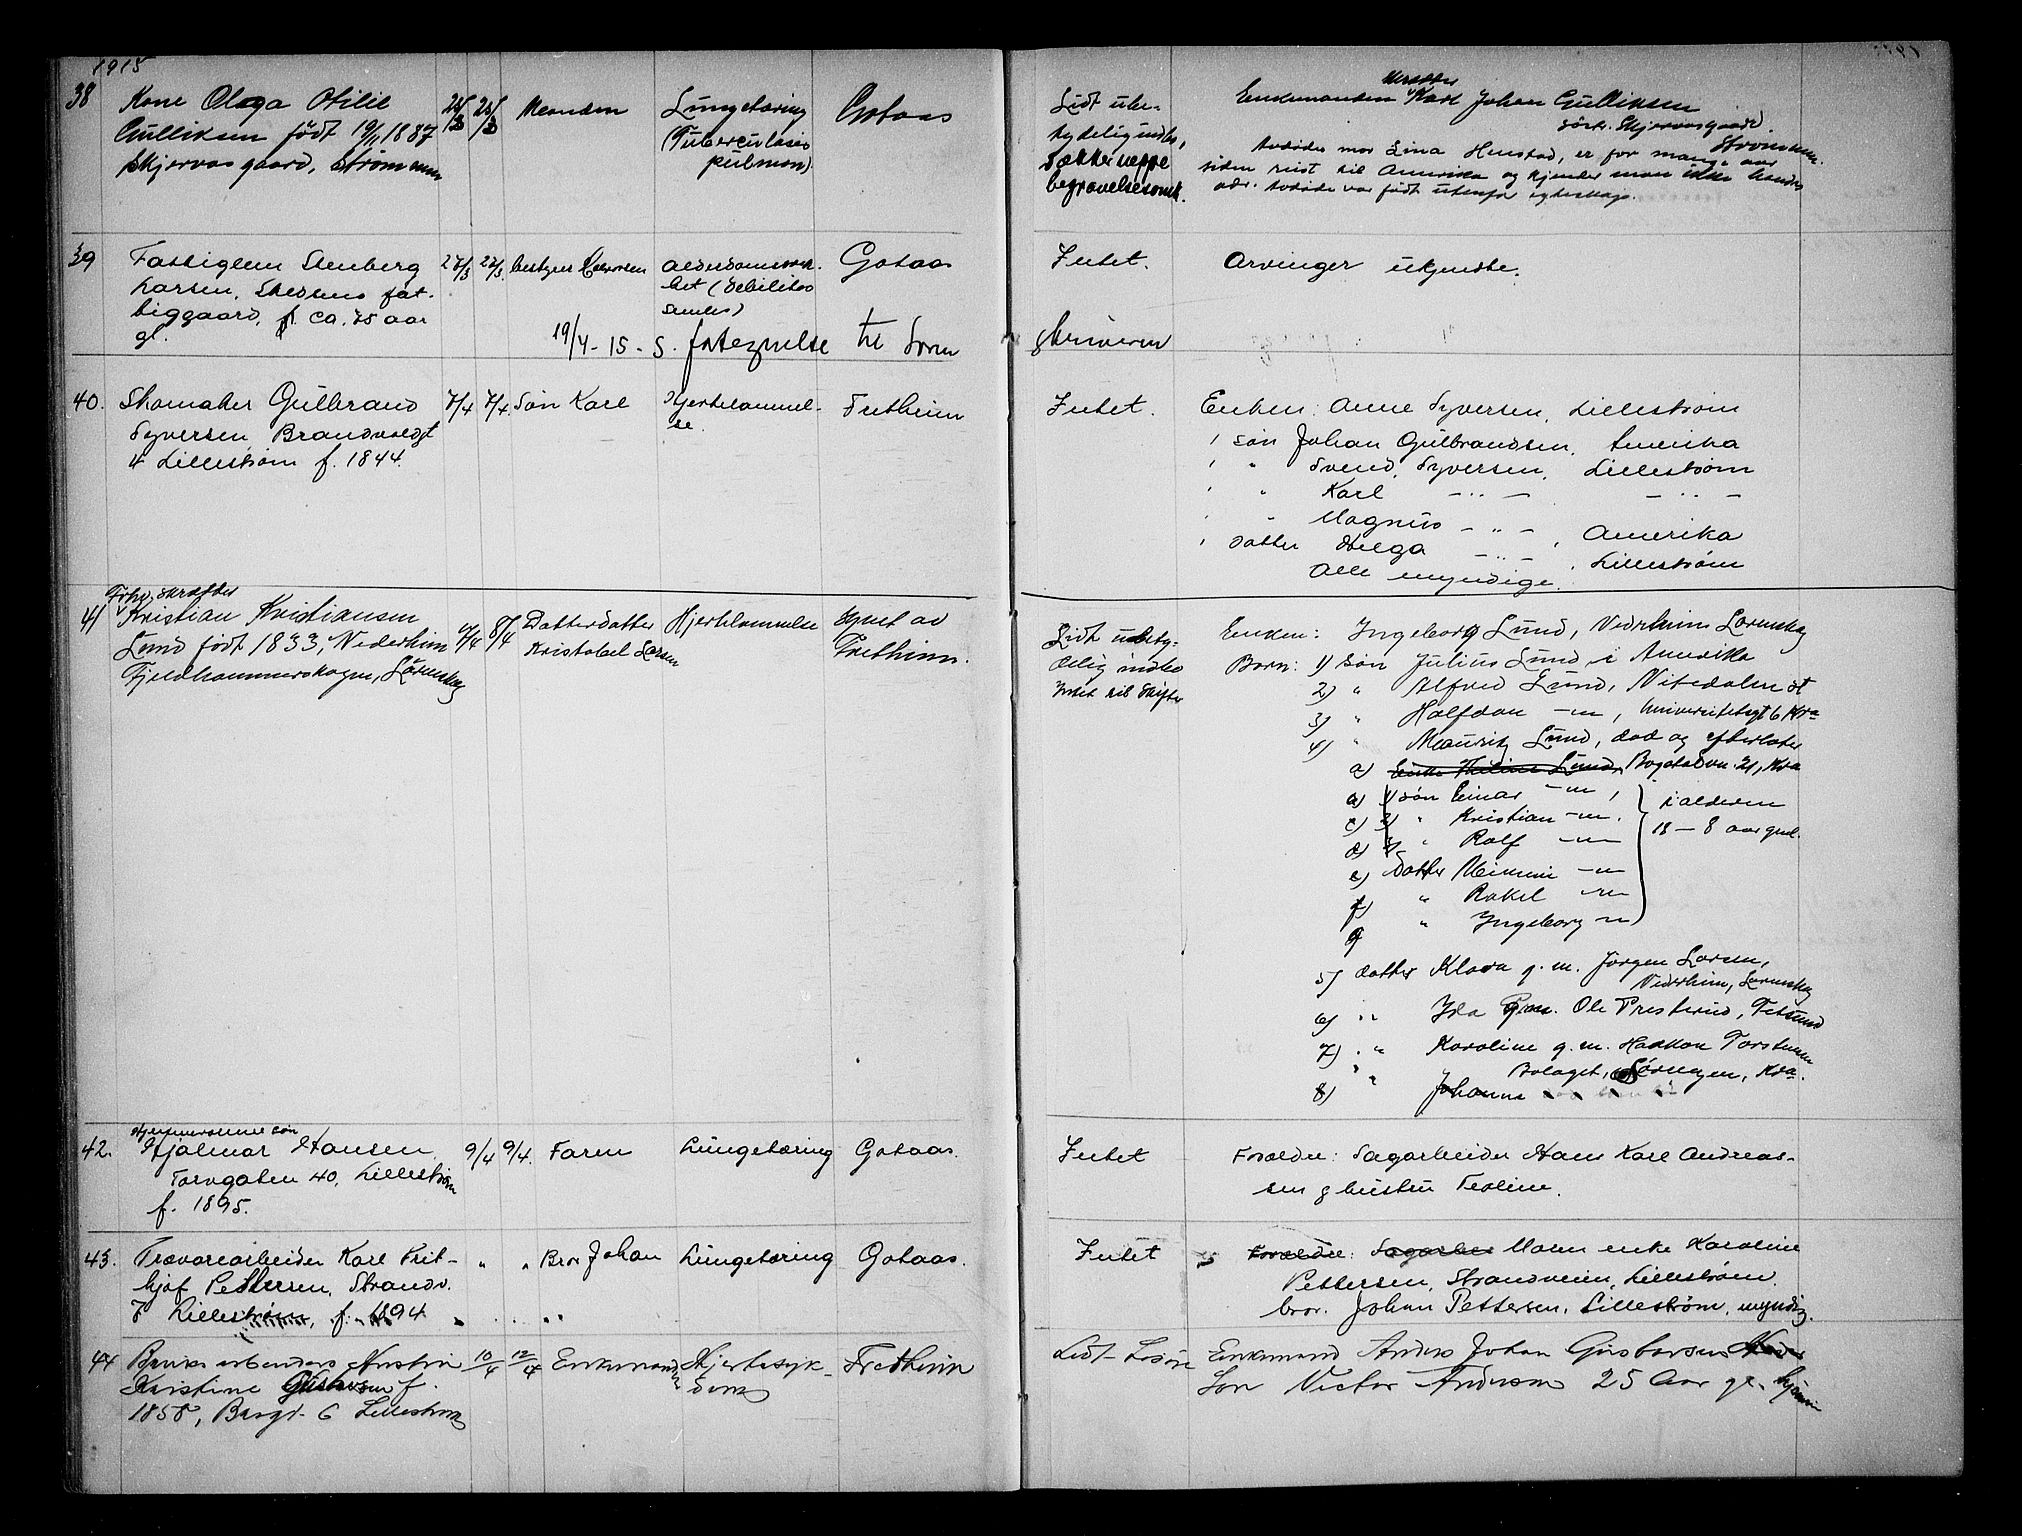 1915
38 Kone Olaga Otilie
Gulliksen født 19/1 1887
Skjervasgaard, Strømmen
Manden
Lungetæring
(Tuberculosis
pulmon)
Gotaas
Lidt ube-
tydelig indbo,
dækker neppe
begravelsesomk.
Enkemanden Karl Johan Gulliksen
Skjervasgaard
Strømmen.
Avdødes mor Lina Henstad, er for mange aar
siden reist til Amerika og kjender man ikke hendes
adr. Avdøde var født utenfor egteskap.
39 Fattiglem Stenberg
Larsen, Skedsmo fat-
tiggaard, f. ca. 75 aar
gl.
27/3 27/3 bestyrer Halvorsen
Alderdomssvak-
het (Debilitas
senilis)
Gotaas
Intet.
Arvinger ukjendte.
19/4 - 15 - S. fategnelse til Soren
skriveren
40. Skomaker Gulbrand
Syversen Brandvoldgt
4 Lillestrøm f. 1844.
7/4 7/4 Søn Karl
Hjertelammel-
se.
Fretheim
Intet.
Enken: Anne Syversen, Lillestrøm
1 søn Johan Gulbrandsen, Amerika
1 " Svend Syversen, Lillestrøm
1 " Karl — " — — " —
1 " Magnus — " — , Amerika
1 datter Helga — " — , Lillestrøm
Alle myndige.
41 Forhv. skrædder
Kristian Kristiansen
Lund født 1833, Nederhim
Fjeldhammerskogen, Lørenskog
8/4 Datterdatter
Kristobel Larsen
Hjertelammelse
Synet av
Fretheim.
Lidt ubety-
delig indbo
Intet til Skifte
Enken: Ingeborg Lund, Nederhim Lørenskog
Børn: 1) søn Julius Lund i Amerika
2) " Alfred Lund, Nitedalen st
3) " Halfdan —"—, Universitetsgt 6 Kra
4) " Mauritz Lund, død og efterlater
a) Enke Lund, Bogstadvn. 21, Kra
1) søn Einar —"—, i alderen
c) 2) " Kristian —"—. 18 — 8 aar gml.
d) 3) " Rolf —"—
e) Datter Minnie —"—
f) " Rakel —"—
g " Ingeborg —"—
5) datter Klara g. m. Jørgen Larsen,
Nederhim, Lørenskog
6) " Ida g.m. Ole Presterud, Fetsund
7) " Karoline g. m. Haakon Torstensen
Bolaget, Sørengen, Kra.
8) " Johanne
42. Hjemmeværende søn
Hjalmar Hansen
Torvgaten 40, Lillestrøm
f. 1895.
9/4 9/4. Faren
Lungetæring
Gotaas.
Intet
Forældre: Sagarbeider Hans Karl Andreas-
sen g hustru Teoline.
43. Trævarearbeider Karl Frit-
hjof Pettersen, Strandv.
7 Lillestrøm, f. 1894
" " Bror Johan
Lungetæring
Gotaas.
Intet
Forældre: Sagarbei Moren enke Karoline
Pettersen, Strandveien, Lillestrøm
bror. Johan Pettersen, Lillestrøm, myndig.
44 Bruksarbeiders Hustru
Kristine Gustavsen f.
1858, Brogt. 6 Lillestrøm
10/4 12/4 Enkemand
Hjertesyk-
dom
Fretheim
Lidt Løsøre
Enkemand Anders Johan Gustavsen
Søn Victor Andersen 25 Aar gl. hjemme